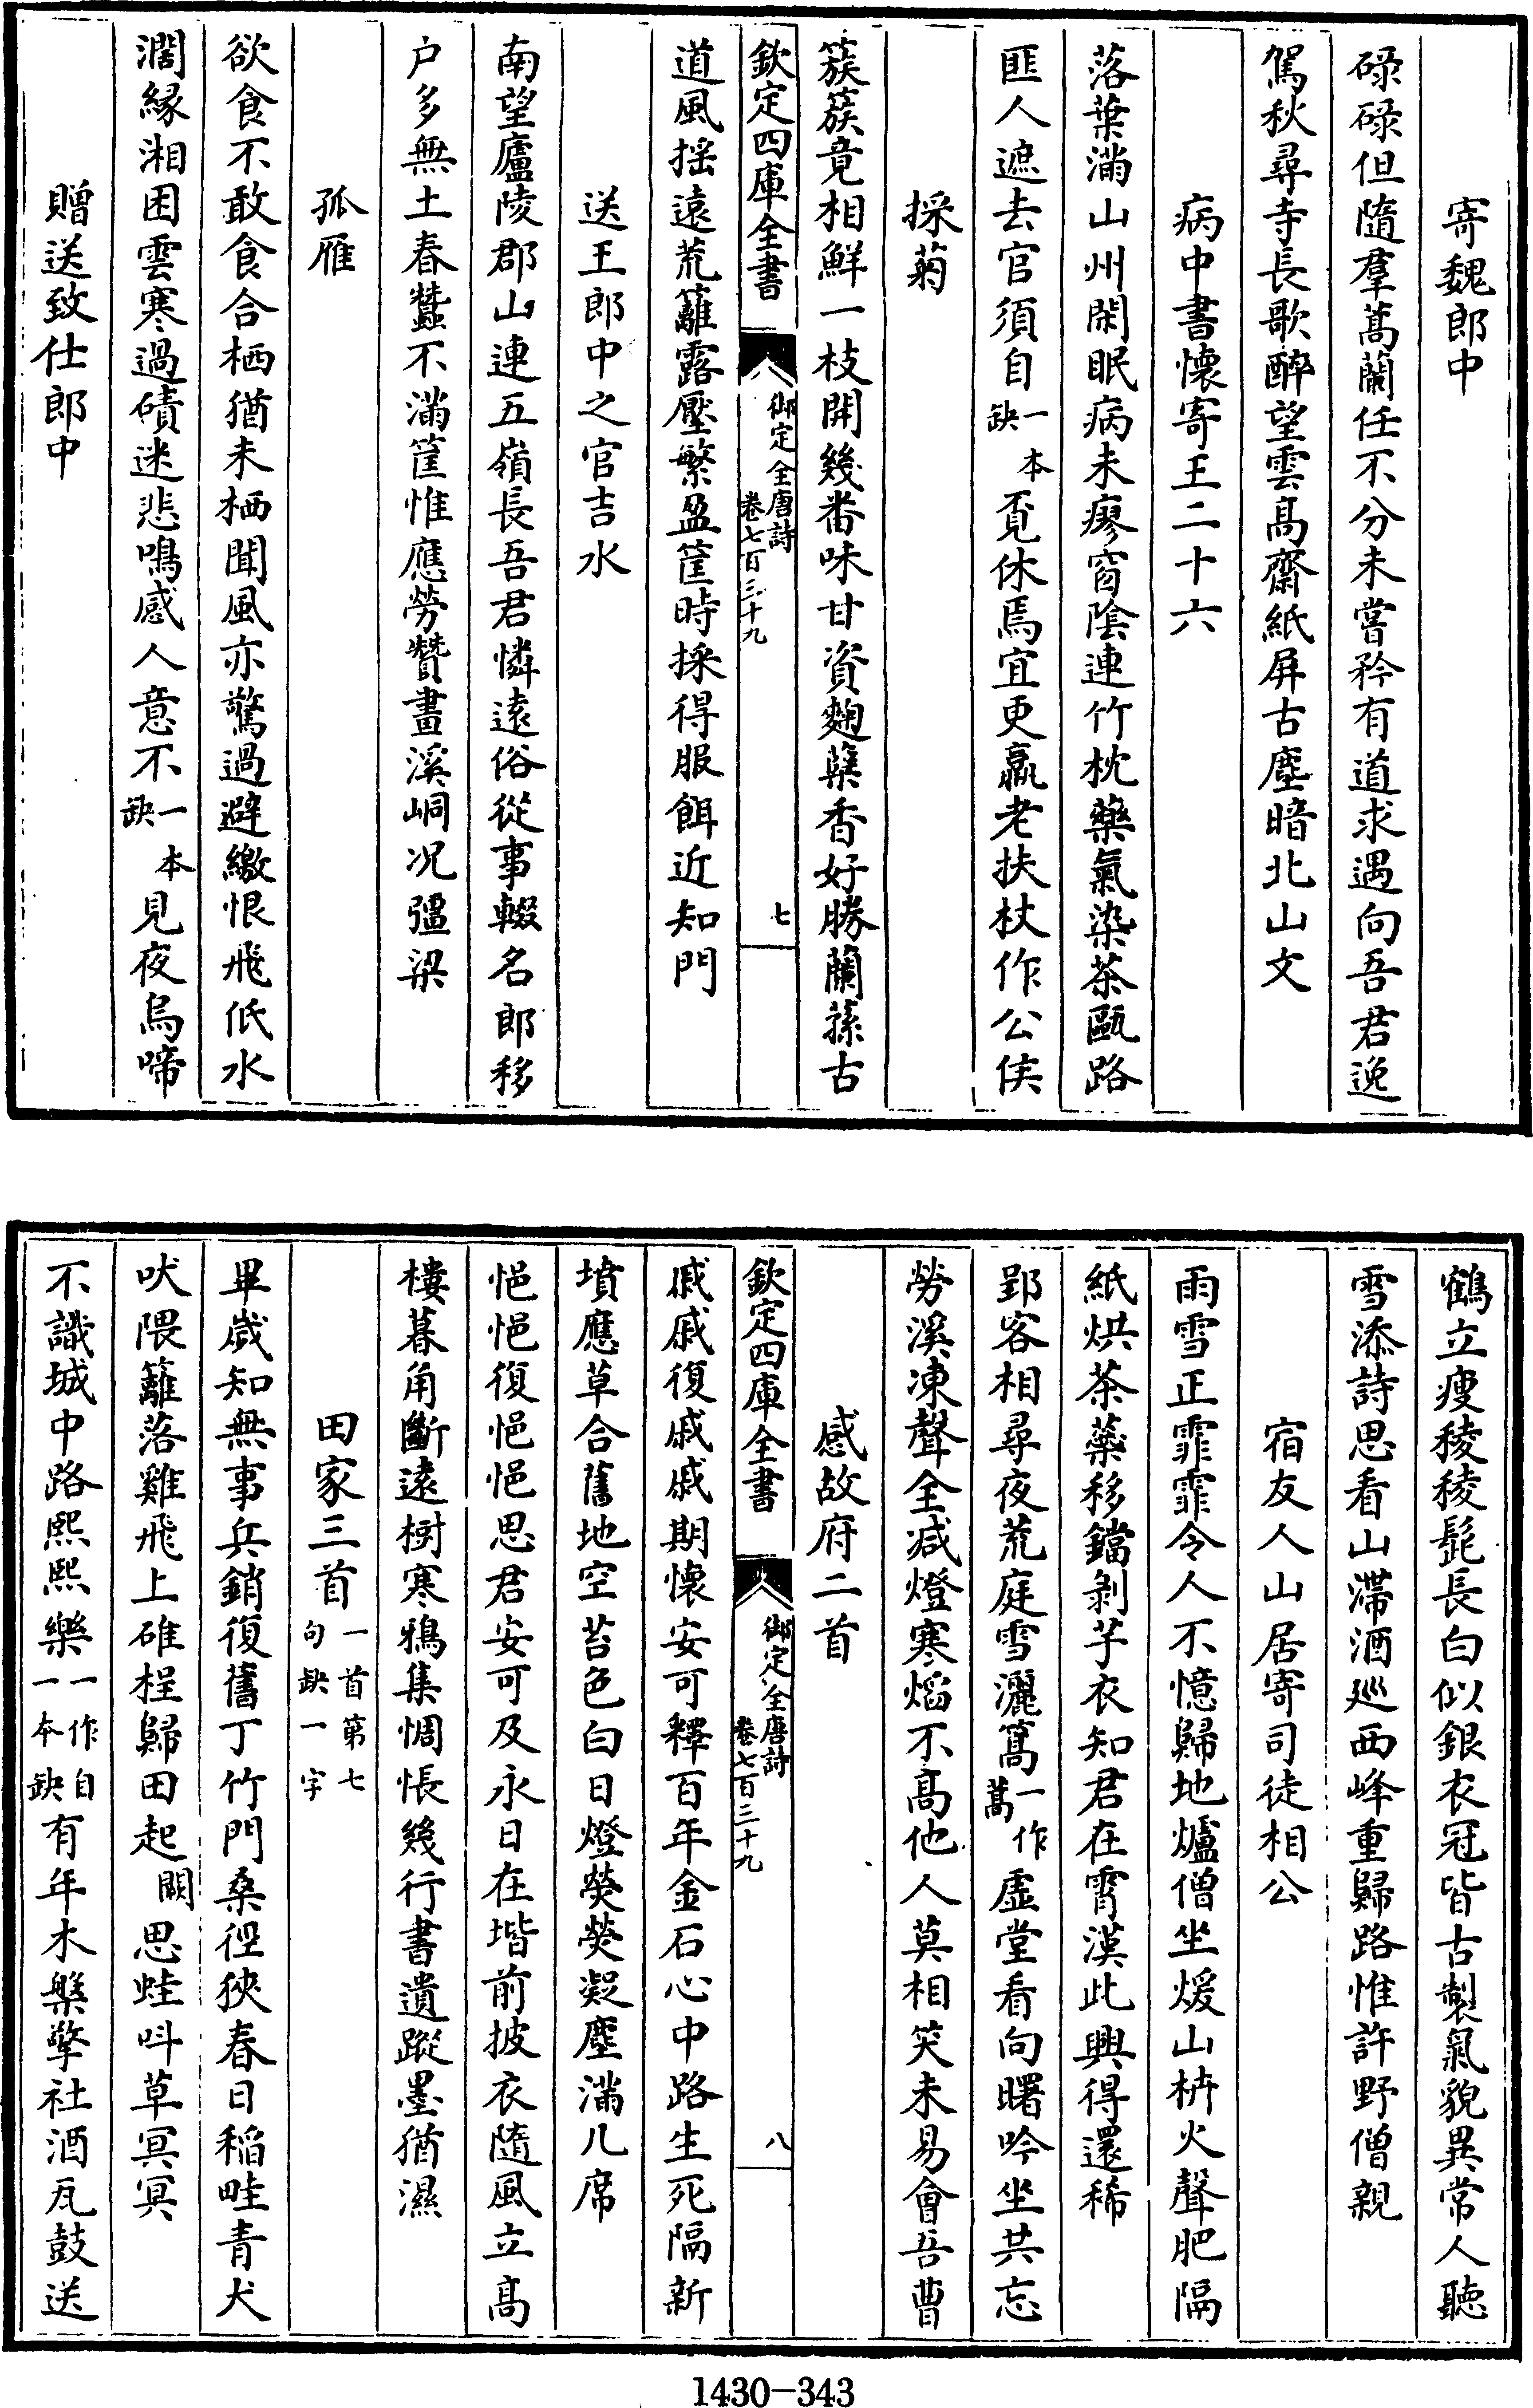 寄魏郎中
碌碌但隨羣蒿蘭任不分未嘗矜有道求遇向吾君逸
駕秋尋寺長歌醉望雲髙齋紙屏古塵暗北山文
病中書懷寄王二十六
落葉滿山州閑眠病未瘳窗陰連竹枕藥氣染茶甌路
匪人遮去官須自一本缺覔休焉宜更羸老扶杖作公侯
採菊
簇簇竟相鮮一枝開幾番味甘資麴糵香好勝蘭蓀古
欽定四庫全書
御定全唐詩
卷七百三十九
七
道風揺遠荒籬露壓繁盈筐時採得服餌近知門
送王郎中之官吉水
南望廬陵郡山連五嶺長吾君憐逺俗從事輟名郎移
户多無土春蠶不滿筐惟應勞贊畫溪峒况彊梁
孤雁
欲食不敢食合栖猶未栖聞風亦驚過避繳恨飛低水
濶縁湘困雲寒過磧迷悲鳴感人意不一本缺見夜烏啼
贈送致仕郎中
鶴立瘦稜稜髭長白似銀衣冠皆古製氣貌異常人聽
雪添詩思看山滯酒廵西峰重歸路惟許野僧親
宿友人山居寄司徒相公
雨雪正霏霏令人不憶歸地爐僧坐煖山枿火聲肥隔
紙烘茶藥移鐺剝芋衣知君在霄漢此興得還稀
郢客相尋夜荒庭雪灑篙一作蒿虛堂看向曙吟坐共忘
勞溪凍聲全减燈寒焰不髙他人莫相笑未易會吾曹
感故府二首
欽定四庫全書
御定全唐詩
卷七百三十九
八
戚戚復戚戚期懷安可釋百年金石心中路生死隔新
墳應草合舊地空苔色白日燈熒熒凝塵滿几席
悒悒復悒悒思君安可及永日在堦前披衣隨風立髙
樓暮角斷遠樹寒鴉集惆悵幾行書遺蹤墨猶濕
田家三首一首第七句缺一字
畢歲知無事兵銷復舊丁竹門桑徑狹春日稻畦青犬
吠隈籬落雞飛上碓桯歸田起闕思蛙呌草冥冥
不識城中路熙熙樂一作自一本缺有年木槃擎社酒瓦鼓送
1430-343